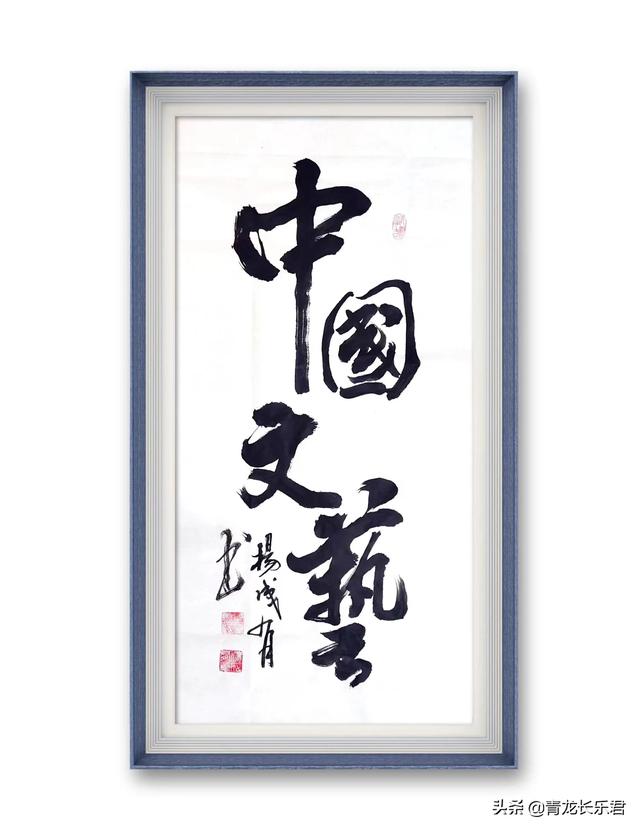 中國
文藝
楊成
书
头条 @青龙长乐君